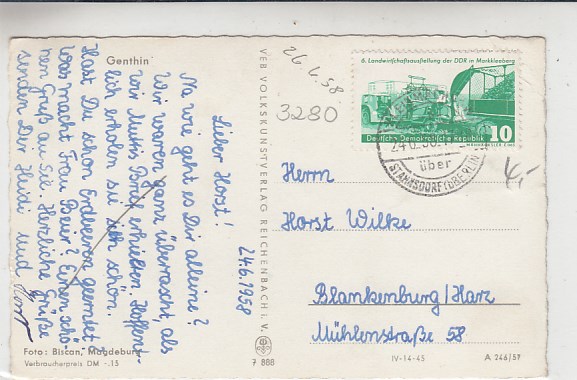 Genthin
24.6.1958
Lieber Horst!
Na wie geht es Dir alleine?
Wir waren ganz überrascht als
wir Muttis Brief erhielten. Hoffent-
lich erholen sie sich schön.
Hast Du schon Erdbeeren geerntet?
Was macht Frau Beier? Einen schö-
nen Gruß an sie. Herzliche Grüße
senden Dir Heidi und Horst
Foto: Biscan, Magdeburg
Verbraucherpreis DM -.15
VEB VOLKSKUNSTVERLAG REICHENBACH i. V.
7 888
26.6.58
3280
6. Landwirtschaftsausstellung der DDR in Markkleeberg
Deutsche Demokratische Republik
10
über
STAHNSDORF (b BERLIN)
4,-
Herrn
Horst Wilke
Blankenburg/Harz
Mühlenstraße 58
IV-14-45
A 246/57